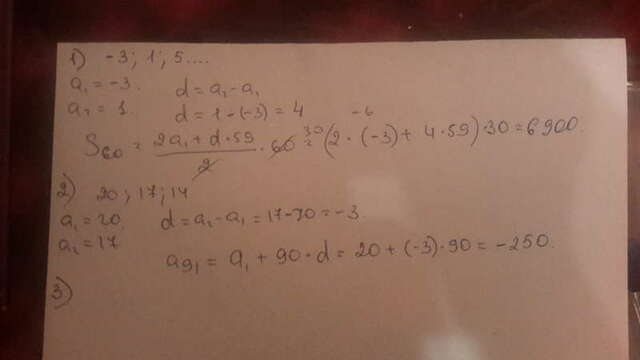 1) -3; 1; 5....
a₁ = -3. d = a₂ - a₁
a₂ = 1. d = 1 - (-3) = 4
-6
S₆₀ = (2a₁ + d·59)/2 · 60 30 = (2·(-3) + 4·59)·30 = 6900.
2) 20; 17; 14
a₁ = 20. d = a₂ - a₁ = 17 - 20 = -3.
a₂ = 17
a₉₁ = a₁ + 90·d = 20 + (-3)·90 = -250.
3)